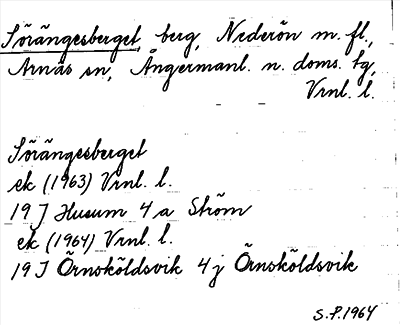 Sörängesberget, berg, Nederön m. fl.,
Arnäs sn, Ångermanl. n. doms. tg,
Vrnl. l.
Sörängesberget
ek (1963) Vrnl. l.
19 J Husum 4 a Ström
ek (1964) Vrnl. l.
19 J Örnsköldsvik 4 j Örnsköldsvik
S.P. 1964